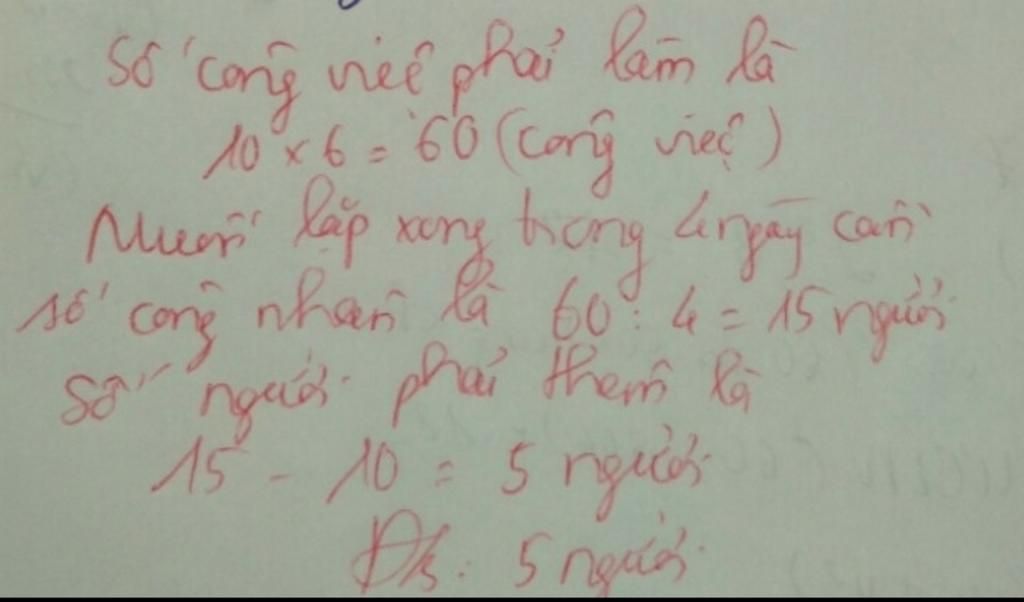 Số công việc phải làm là
10 x 6 = 60 (công việc)
Muốn lắp xong trong 4 ngày cần
số công nhân là 60 : 4 = 15 người
Số người phải thêm là
15 - 10 = 5 người
Đ/s : 5 người